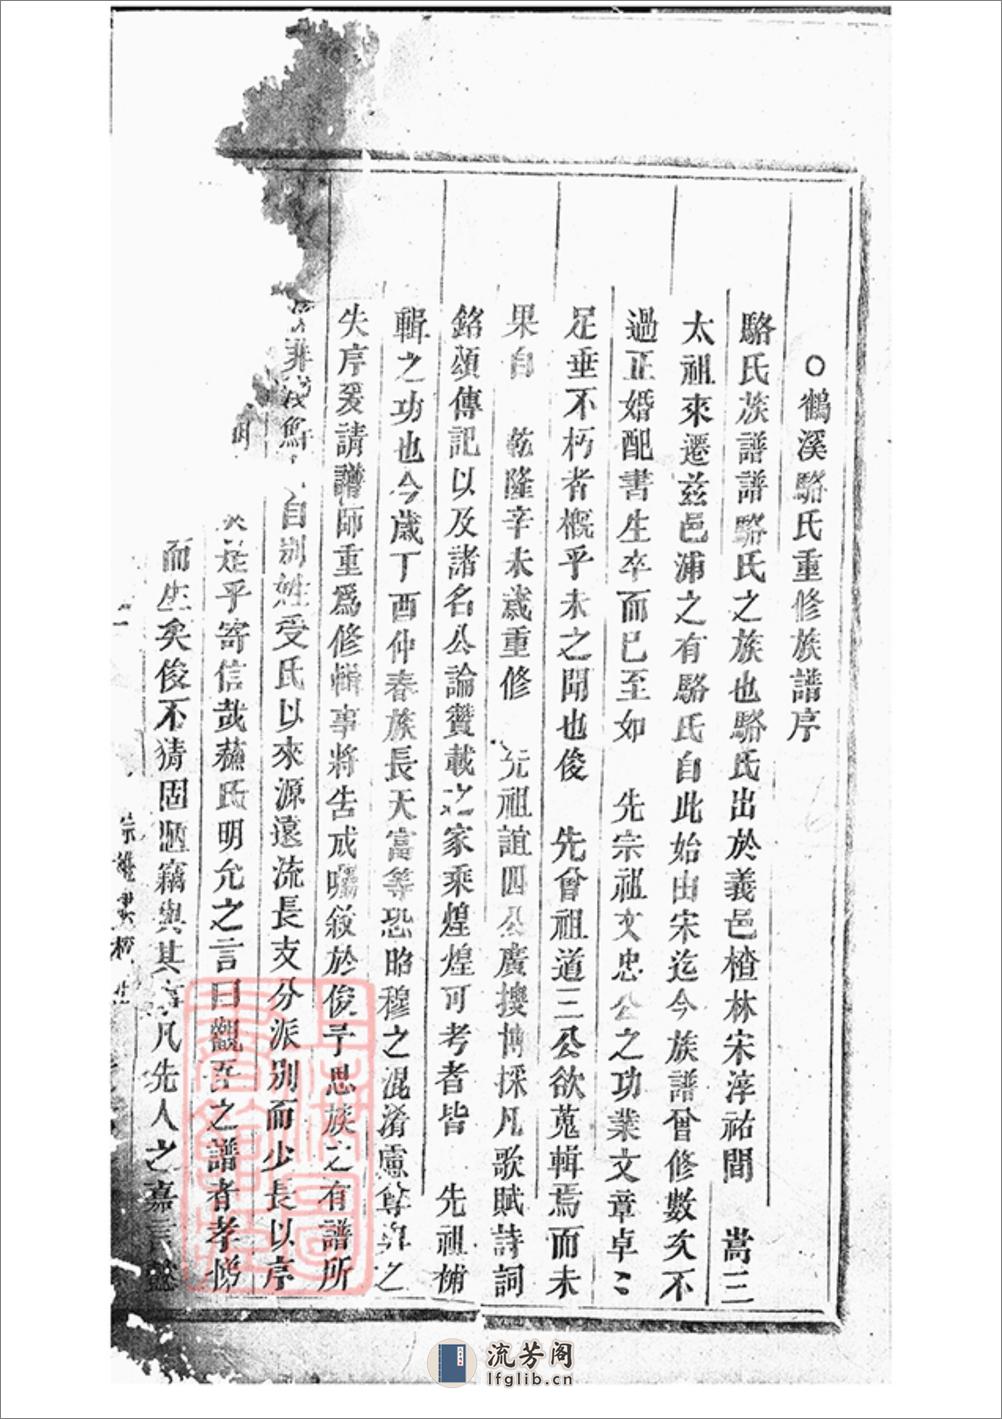 ○鶴溪駱氏重修族譜序
駱氏族譜譜駱氏之族也駱氏出於義邑楂林宋淳祐間　嵩三
太祖來遷茲邑浦之有駱氏自此始由宋迄今族譜曾修數次不
過正婚配書生卒而已至如　先宗祖文忠公之功業文章卓〻
足垂不朽者概乎未之聞也俊　先曾祖道三公欲蒐輯焉而未
果自　乾隆辛未歲重修　先祖誼四公廣搜博採凡歌賦詩詞
銘頌傳記以及諸名公論贊載之家乘煌煌可考者皆　先祖補
輯之功也今歲丁酉仲春族長天富等恐昭穆之混淆慮尊卑之
失序爰請譜師重爲修輯事將告成囑敘於俊予思族之有譜所
自別姓受氏以來源遠流長支分派別而少長以序
是乎寄信哉蘇氏明允之言曰觀吾之譜者孝悌
而生矣俊不猜固陋竊與其　凡先人之嘉言
流芳阁
lfglib.cn